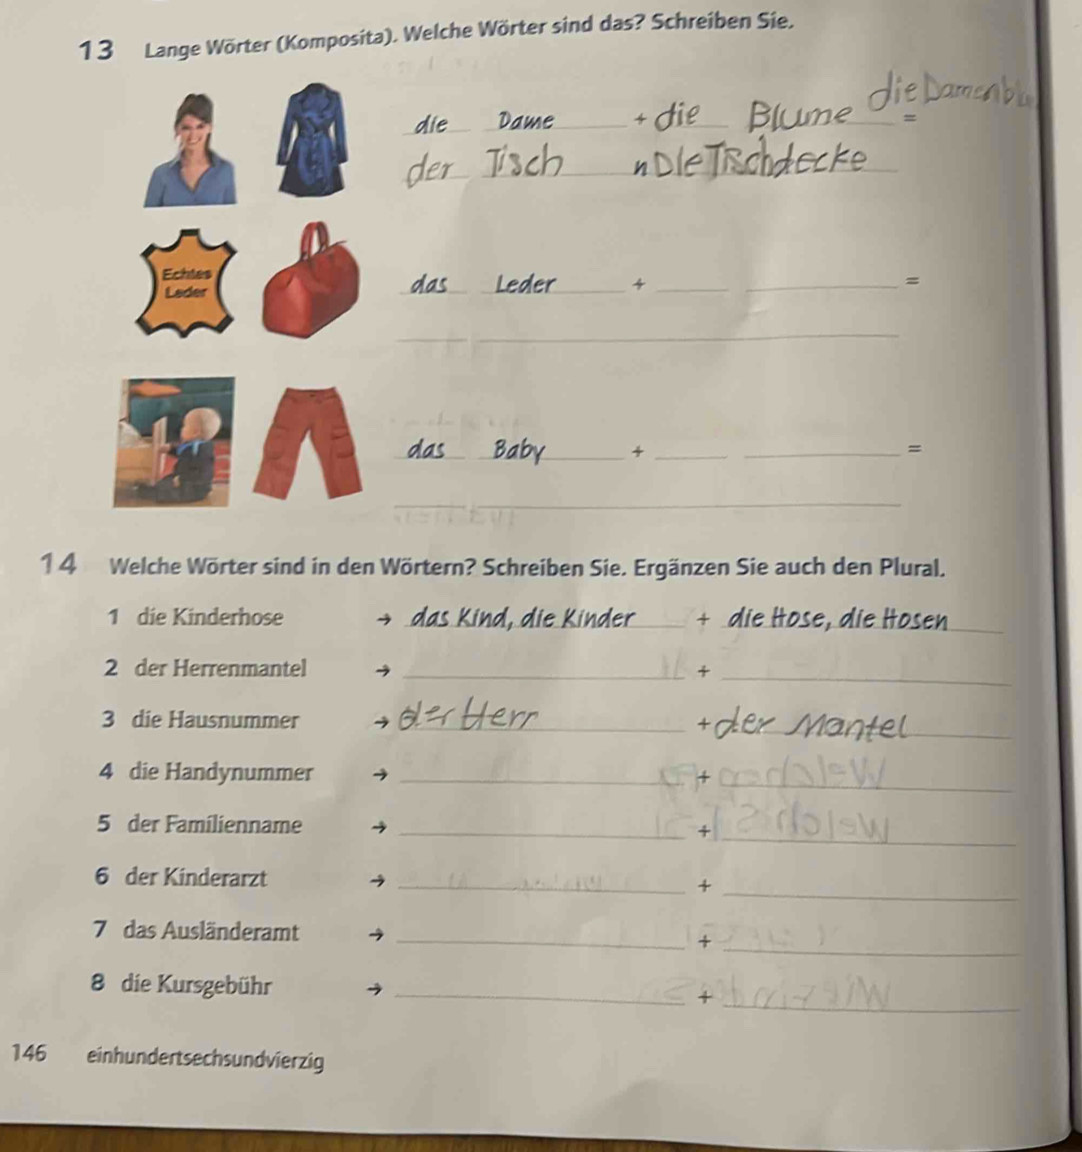 13 Lange Wörter (Komposita). Welche Wörter sind das? Schreiben Sie.
die Dame + die Blume =
der Tisch n Die Tischdecke
Echtes
Leder
das Leder + =
das Baby + =
14 Welche Wörter sind in den Wörtern? Schreiben Sie. Ergänzen Sie auch den Plural.
1 die Kinderhose → das Kind, die Kinder + die Hose, die Hosen
2 der Herrenmantel → +
3 die Hausnummer → der Herr + der Mantel
4 die Handynummer → +
5 der Familienname → +
6 der Kinderarzt → +
7 das Ausländeramt → +
8 die Kursgebühr → +
146 einhundertsechsundvierzig